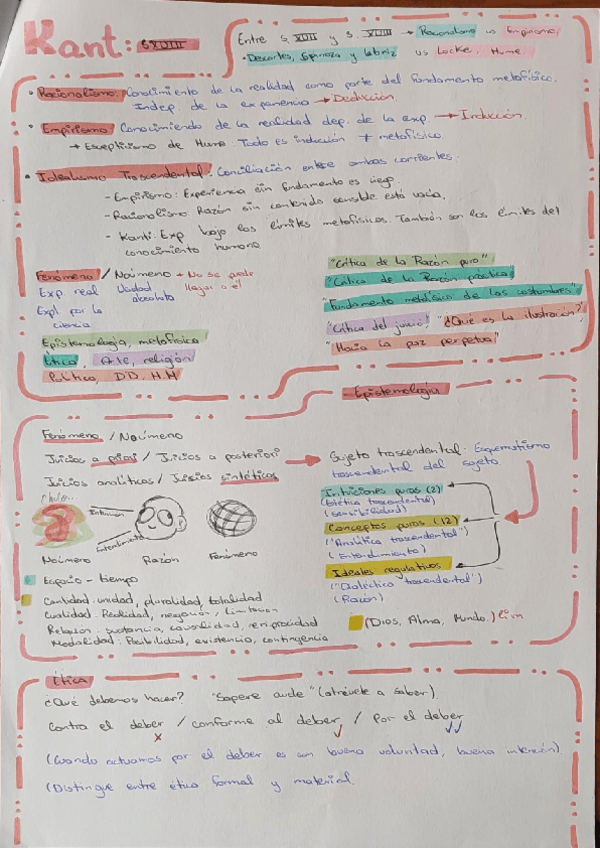 Kant: S.XVIII
Entre S. XVII y S. XVIII → Racionalismo vs Empirismo,
• Descartes, Spinoza y Leibniz vs Locke, Hume.
• Racionalismo: Conocimiento de la realidad como parte del fundamento metafísico.
Indep. de la experiencia → Deducción.
• Empirismo: Conocimiendo de la realidad dep. de la exp → Inducción.
→ Escepticismo de Hume: Todo es inducción ≠ metafísico.
• Idealismo Trascendental: Conciliación entre ambas corrientes.
- Empirismo: Experiencia sin fundamento es ciego.
- Racionalismo: Razón sin contenido sensible está vacía.
- Kant: Exp bajo los límites metafísicos. También son los límites del
conocimiento humano
Fenómeno / Noúmeno → No se puede
Exp. real Verdad llegar a él
Expl por la absoluta
ciencia
Epistemología, metafísica
Ética, Arte, religión
Política, DD.HH
"Crítica de la Razón pura"
"Crítica de la Razón práctica"
"Fundamento metafísico de las costumbres"
"Crítica del juicio", "¿Qué es la ilustración?"
"Hacia la paz perpetua"
- Epistemología
Fenómeno / Noúmeno
Juicios a priori / Juicios a posteriori → Sujeto trascendental: Esquematismo
trascendental del sujeto
Juicios analíticos / Juicios sintéticos
Intuición
Entendimiento
Noúmeno Razón Fenómeno
Intuiciones puras (2)
("Estética trascendental")
(Sensibilidad)
Conceptos puros (12)
("Analítica trascendental")
(Entendimiento)
Ideales regulativos
("Dialéctica trascendental")
(Razón)
(Dios, Alma, Mundo.)
Espacio - tiempo
Cantidad: unidad, pluralidad, totalidad
Cualidad: Realidad, negación, limitación
Relación: sustancia, causalidad, reciprocidad
Modalidad: Posibilidad, existencia, contingencia
Ética
¿Qué debemos hacer? "Sapere aude" (atrévete a saber)
Contra el deber / conforme al deber / Por el deber
(Cuando actuamos por el deber es con buena voluntad, buena intención)
(Distingue entre ética formal y material.